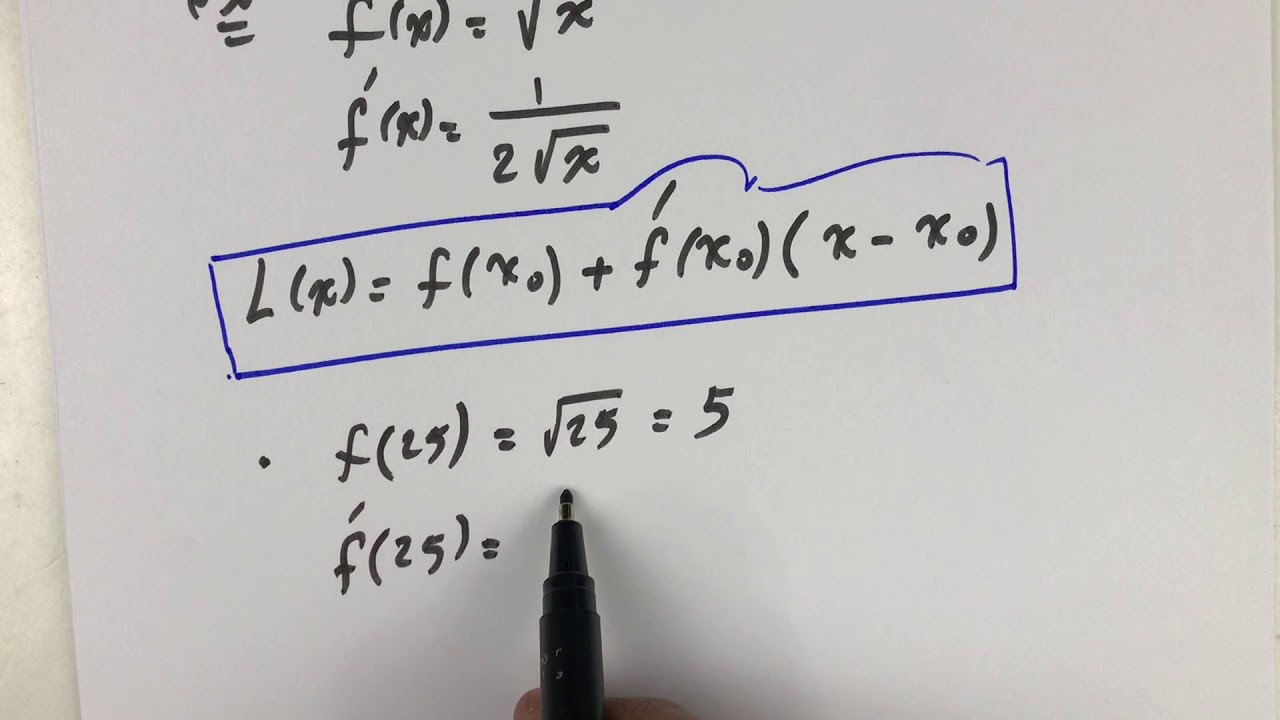 f(x) = √x
f́(x) = 1/(2√x)
L(x) = f(x₀) + f́(x₀)(x - x₀)
. f(25) = √25 = 5
f́(25) =